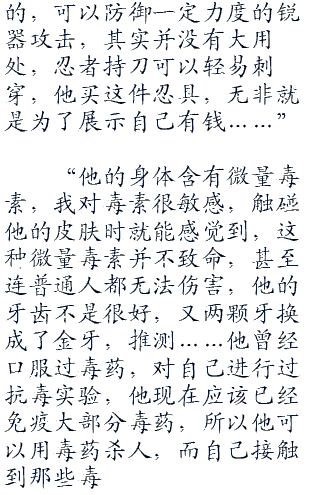 的，可以防御一定力度的锐
器攻击，其实并没有大用
处，忍者持刀可以轻易刺
穿，他买这件忍具，无非就
是为了展示自己有钱……”
“他的身体含有微量毒
素，我对毒素很敏感，触碰
他的皮肤时就能感觉到，这
种微量毒素并不致命，甚至
连普通人都无法伤害，他的
牙齿不是很好，又两颗牙换
成了金牙，推测……他曾经
口服过毒药，对自己进行过
抗毒实验，他现在应该已经
免疫大部分毒药，所以他可
以用毒药杀人，而自己接触
到那些毒